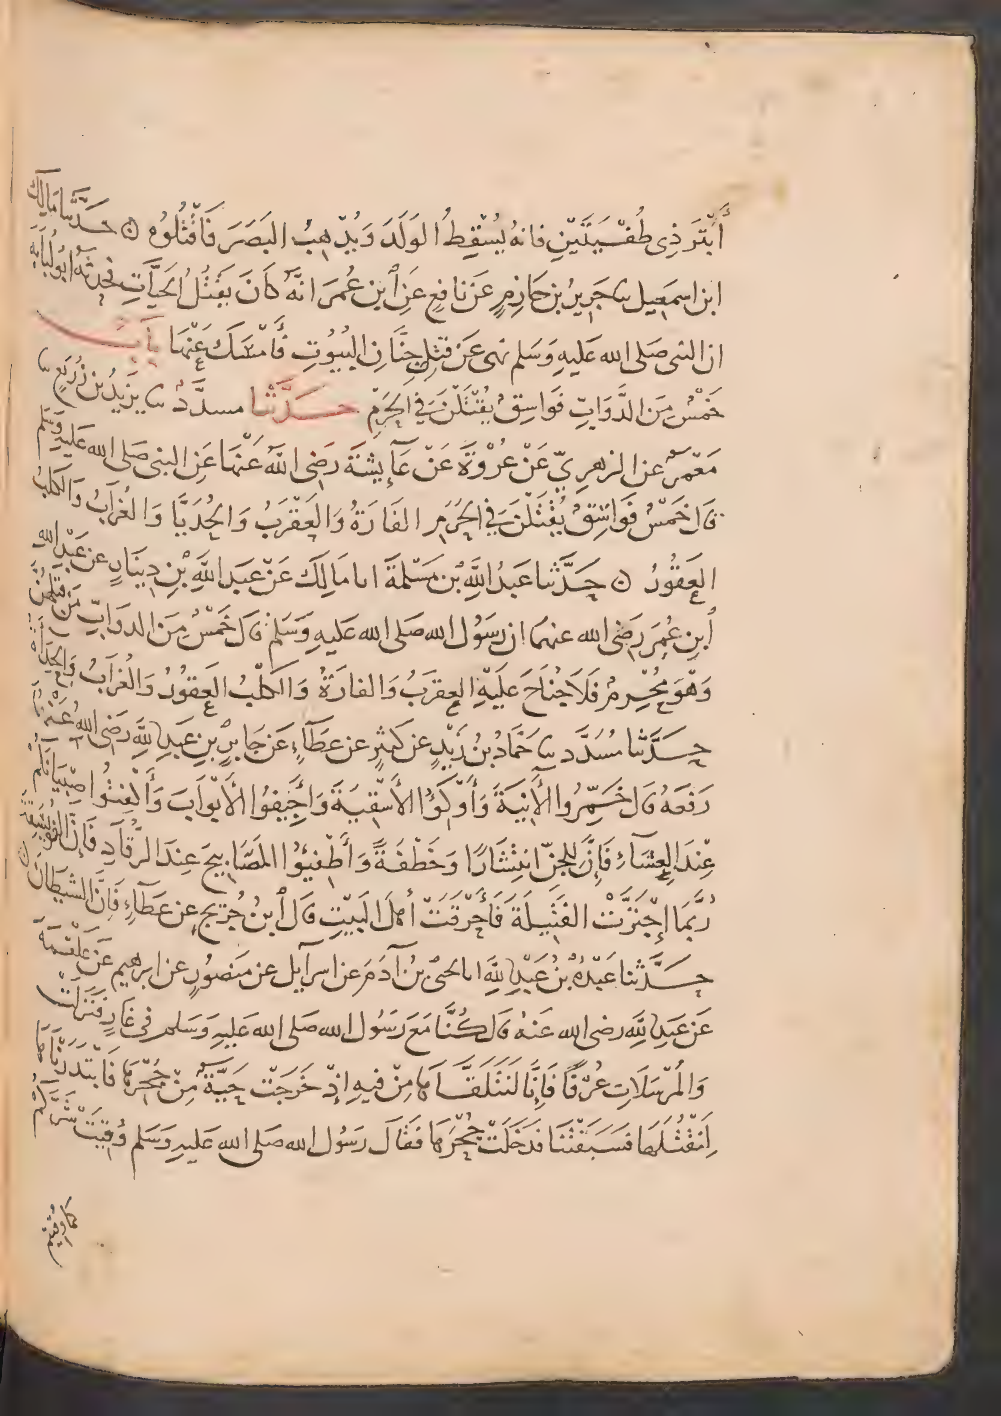 أَبْتَرَ ذِي طُفْيَتَيْنِ فانهُ يُسْقِطُ الوَلَدَ وَيُذْهِبُ البَصَرَ فَاقْتُلُوهُ ۞ حَدَّثنا مَالِك
ابن اسمعيل ثنا جَرِيرُ بنُ حَازِمٍ عَنْ نافِعٍ عَنِ ابنِ عُمَرَ انَّهُ كَانَ يَقْتُلُ الحَيَّاتِ فحدثهُ ابُو لُبَابَة
ان النبى صَلى الله عَليهِ وَسَلم نهى عَنْ قتلِ جِنَّانِ البُيُوتِ فَأَمْسَكَ عَنْهَا بَابٌ
خَمْسٌ مِنَ الدَّوَابِّ فَوَاسِقُ يُقْتَلْنَ فِي الحَرَمِ حَدَّثنا مسدَّدٌ ثنا يزيدُ بنُ زُرَيعٍ ثنا
مَعْمَرٌ عنِ الزهرِيّ عَنْ عُرْوَةَ عَنْ عَآيِشَةَ رَضِى اللهُ عَنْهَا عَنِ النبى صَلى الله عَليهِ وَسَلم
قال خَمْسٌ فَوَاسِقُ يُقْتَلْنَ فِي الحَرَمِ الفَارَةُ وَالعَقْرَبُ وَالحُدَيَّا وَالغُرَابُ وَالكَلْبُ
العَقُورُ ۞ حَدَّثنا عَبدُ اللهِ بن مَسْلَمَةَ انا مَالِك عَنْ عَبدِ اللهِ بْنِ دِينَارٍ عن عَبْدِ الله
ابنِ عُمَرَ رَضِى الله عنهما ان رَسُولَ الله صَلى الله عَليهِ وَسَلم قال خَمْسٌ مِنَ الدوَابِّ مَنْ قتلهُنَّ
وَهْوَ مُحْرِمٌ فَلَا جُنَاحَ عَلَيْهِ العَقرَبُ وَالفارَةُ وَالكَلْبُ العَقُورُ وَالغُرَابُ وَالحِدَأَةُ
حَدَّثنا مُسَدَّد ثنا حَمَّادُ بنُ زَيْدٍ عن كَثِيرٍ عن عَطَآءٍ عَن جَابرِ بنِ عَبدِ اللهِ رَضِى اللهُ عَنْهُمَا
رَفعَهُ قال خَمِّرُوا الآنِيَةَ وَأَوْكُوا الأَسْقِيَةَ وَأَجِيفُوا الأَبْوَابَ وَأكْفِتُوا صِبْيَانَكُمْ
عِنْدَ العِشَآءِ فَإنَّ لِلجِنِّ انْتِشَارًا وَخَطْفَةً وَأَطْفِئُوا المَصَابِيحَ عِندَ الرُّقَادِ فَإنَّ الفُوَيْسِقَةَ
رُبَّمَا اِجْتَرَّتْ الفَتِيلَةَ فَأَحْرَقَتْ أهْلَ البَيْتِ قال ابنُ جُرَيجٍ عن عَطَآءٍ فَانَّ الشيطَانَ
حَدَّثنا عَبْدَةُ بْنُ عَبْدِ اللهِ انا يحيى بْنُ آدَمَ عن اسرآيل عن مَنصُورٍ عن ابرهيم عَن عَلقَمَةَ
عَن عَبدِ اللهِ رضى الله عَنهُ قال كُنَّا مَعَ رَسُول الله صَلى الله عَليهِ وَسَلم فى غَارٍ فَنَزَلَتْ
وَالمُرْسَلَاتِ عُرْفًا فَإِنَّا لَنَتَلَقَّاهَا مِنْ فِيهِ اِذْ خَرَجَتْ حَيَّةٌ مِنْ جُحْرِهَا فَابْتَدَرْنَاهَا
لِنَقْتُلَهَا فَسَبَقَتْنَا فَدَخَلَتْ جُحْرَهَا فقَالَ رَسُول الله صَلى الله عَليهِ وَسَلم وُقِيَتْ شَرَّكُمْ
كما وُقيتم